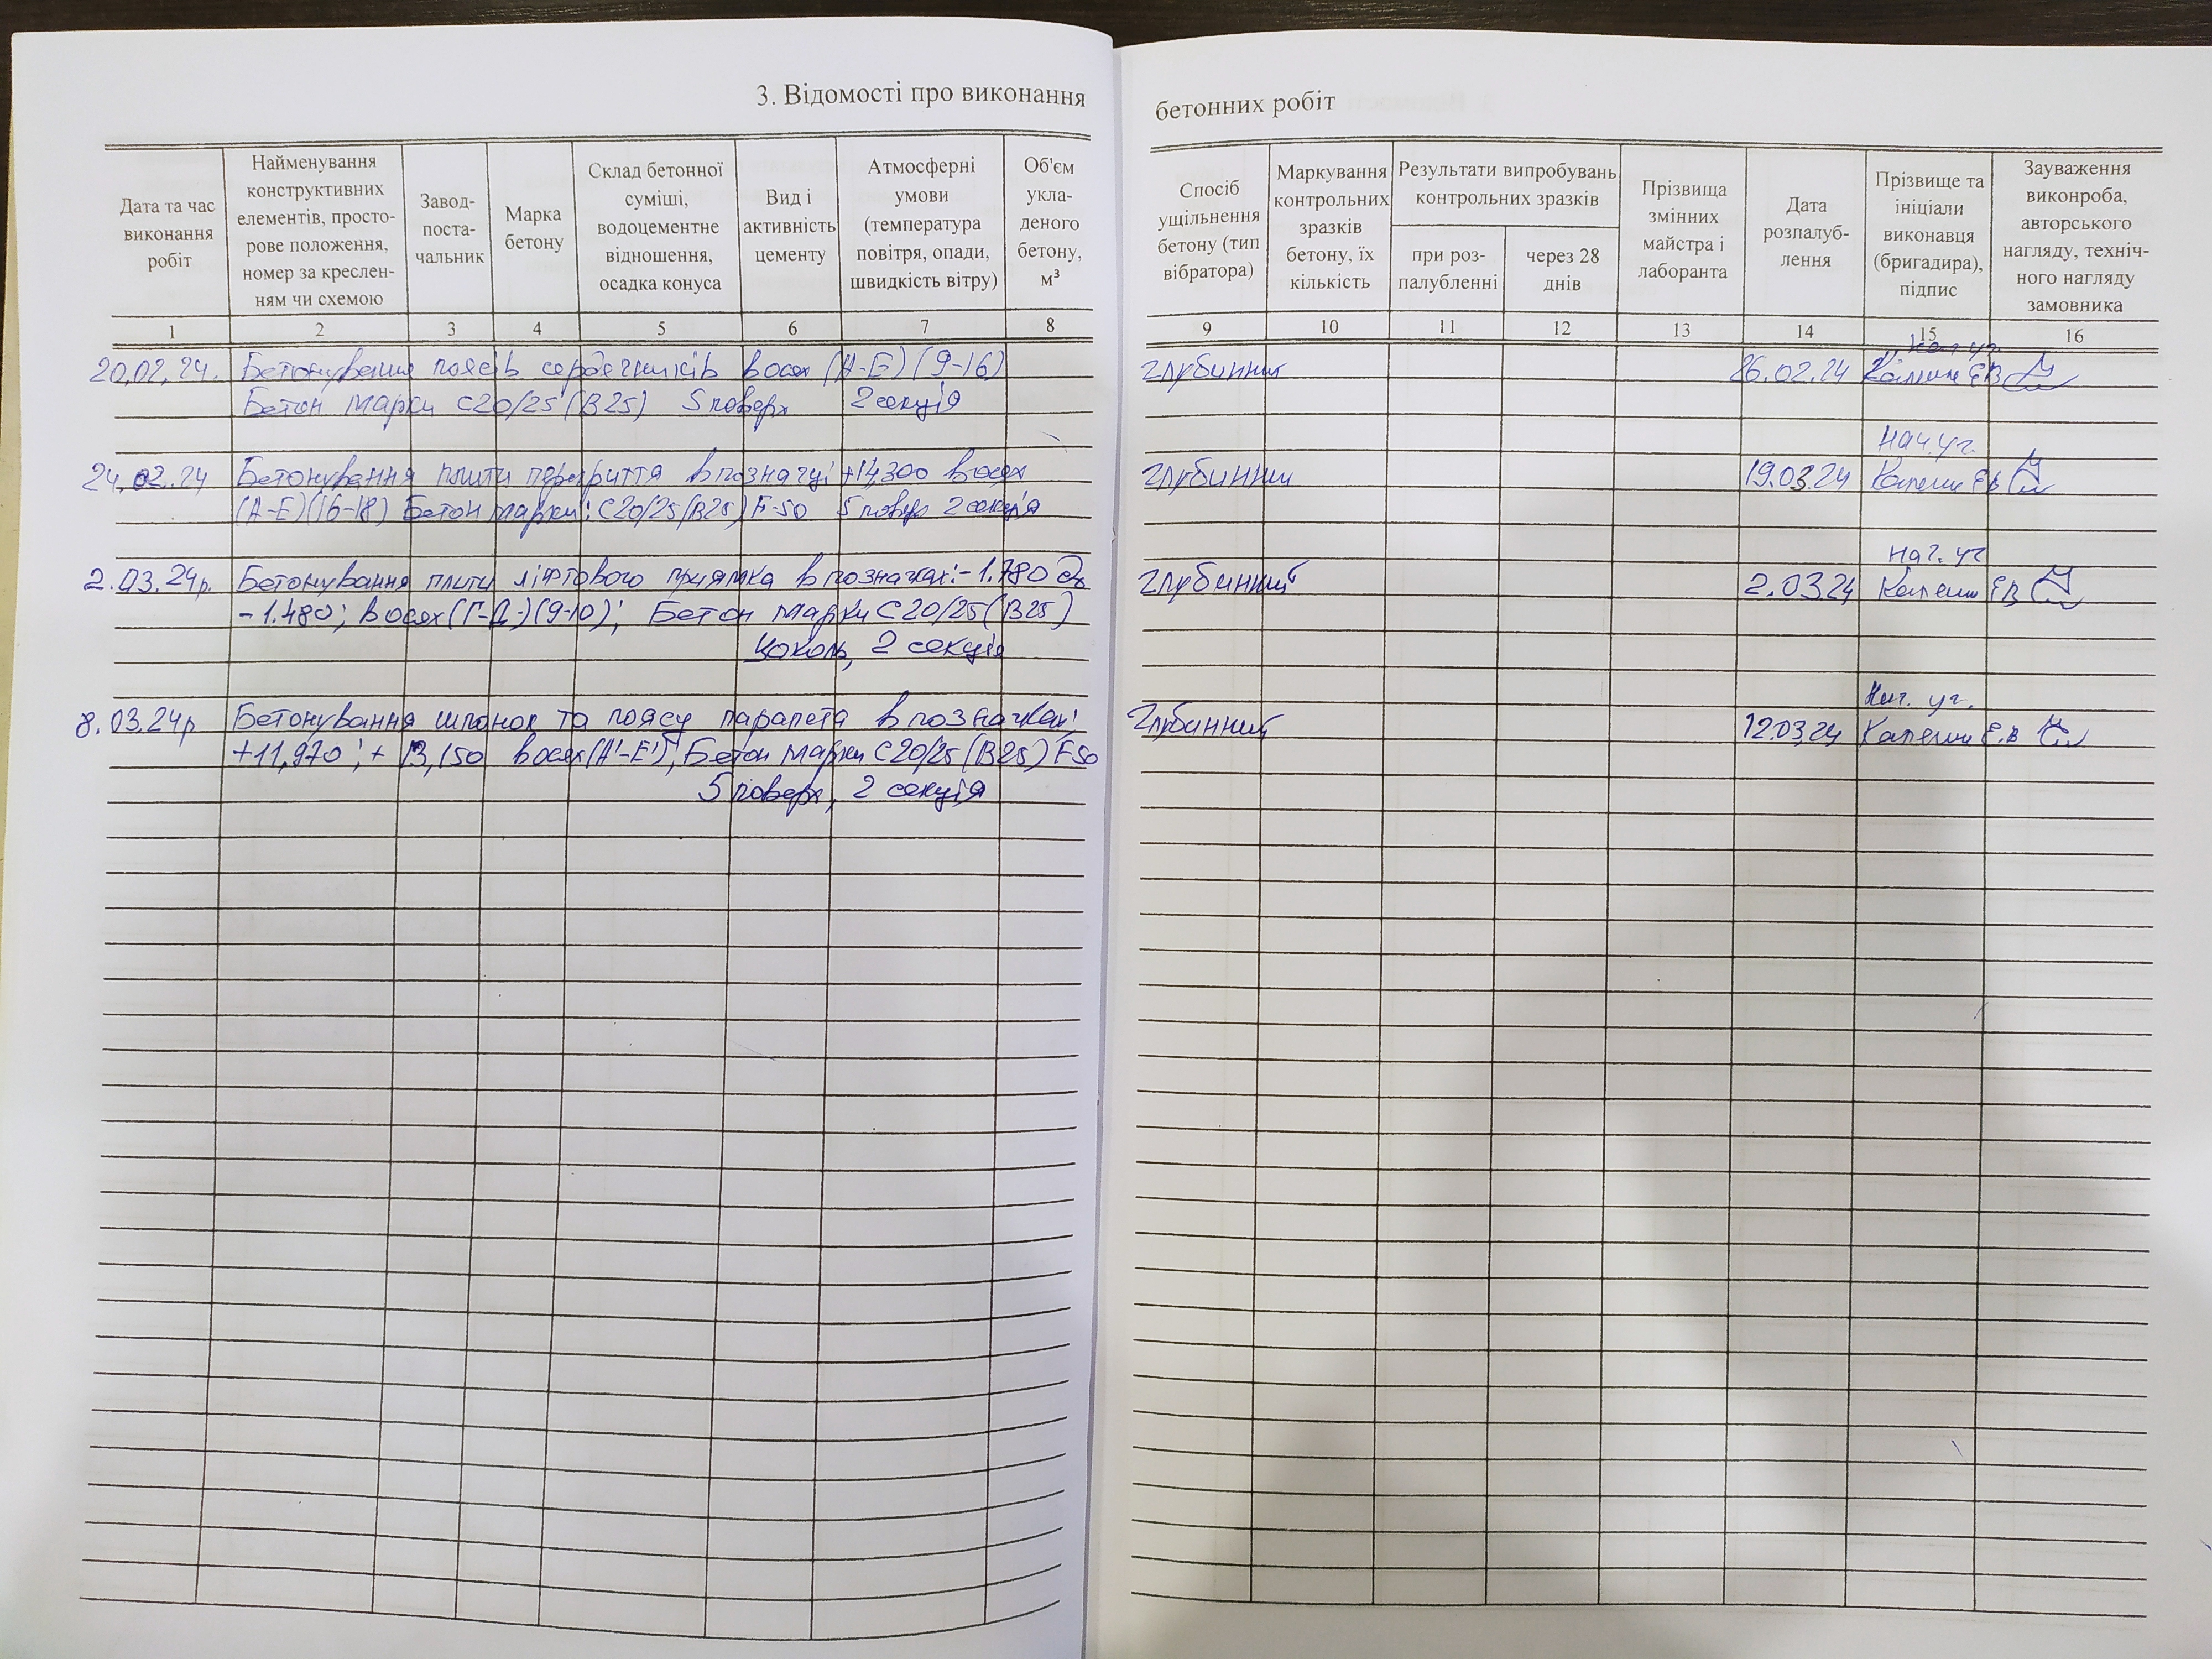 3. Відомості про виконання
Дата та час
виконання
робіт
Найменування
конструктивних
елементів, просто-
рове положення,
номер за креслен-
ням чи схемою
Завод-
поста-
чальник
Марка
бетону
Склад бетонної
суміші,
водоцементне
відношення,
осадка конуса
Вид і
активність
цементу
Атмосферні
умови
(температура
повітря, опади,
швидкість вітру)
Об'єм
укла-
деного
бетону,
м³
1 2 3 4 5 6 7 8
20.02.24. Бетонування поясів сердечників в осях (А-Е) (9-16)
Бетон марки С20/25 (В25) 5 поверх 2 секція
24.02.24 Бетонування плити перекриття в позначці +14,300 в осях
(А-Е)(16-18) Бетон марки: С20/25(В25) F-50 5 поверх 2 секція
2.03.24р. Бетонування плити ліфтового приямка в позначках: -1.780 до
-1.480; в осях (Г-Д-)(9-10); Бетон марки С20/25 (В25)
Цоколь, 2 секція
8.03.24р Бетонування шпонок та поясу парапета в позначках:
+11,970; + 13,150 в осях (А'-Е'), Бетон марки С20/25 (В25) F50
5 поверх, 2 секція
бетонних робіт
Спосіб
ущільнення
бетону (тип
вібратора)
Маркування
контрольних
зразків
бетону, їх
кількість
Результати випробувань
контрольних зразків
при роз-
палубленні
через 28
днів
Прізвища
змінних
майстра і
лаборанта
Дата
розпалуб-
лення
Прізвище та
ініціали
виконавця
(бригадира),
підпис
Зауваження
виконроба,
авторського
нагляду, техніч-
ного нагляду
замовника
9 10 11 12 13 14 15 16
Нач. уч.
глубинний 26.02.24 ЄВ
Нач. уч.
глубинний 19.03.24 ЄВ
Нач. уч
глубинний 2.03.24 ЄВ
Нач. уч.
глубинний 12.03.24 Є.В